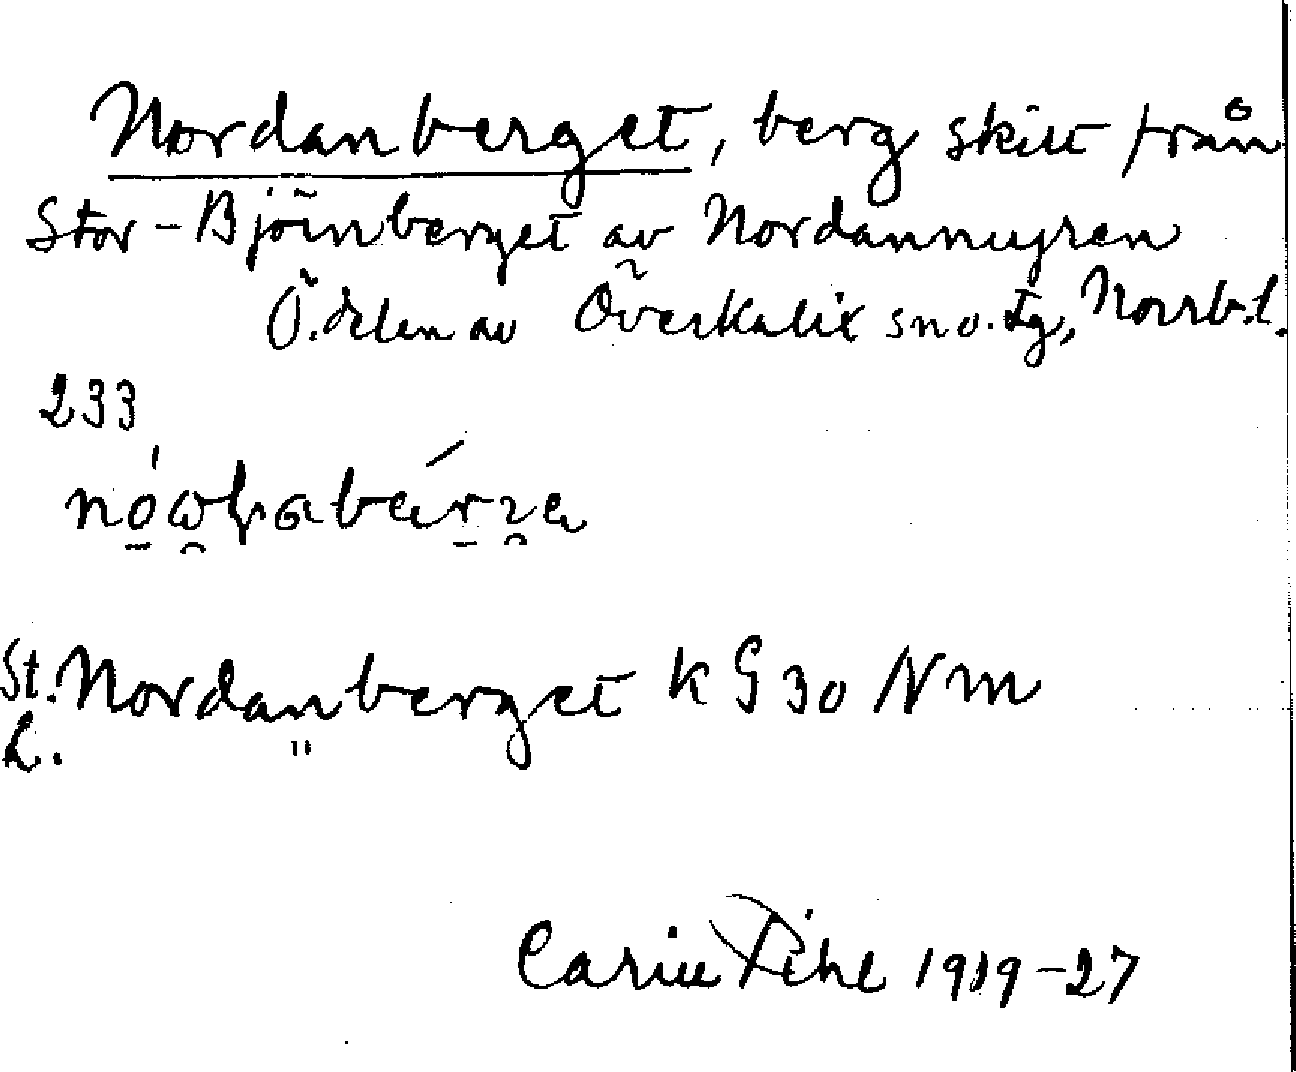 Nordanberget, berg skilt från
Stor-Björnberget av Nordanmyren
Ö. delen av Överkalix sn o. tg, Norrb.l.
233
St. Nordanberget k G 30 Nm
L.
Carin Pihl 1919-27